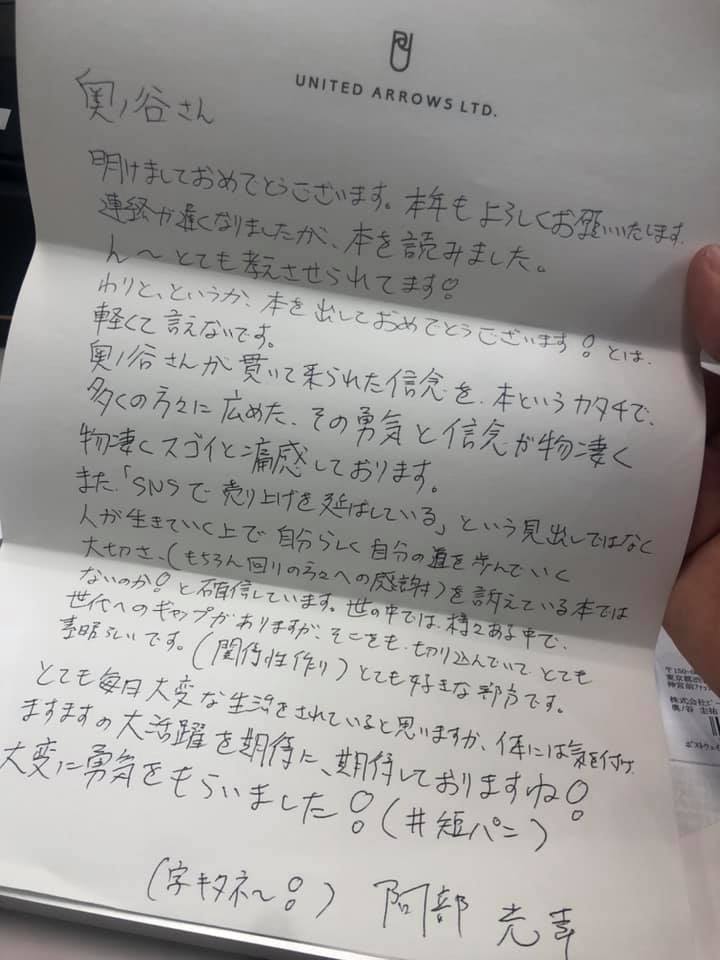 UNITED ARROWS LTD.
奥ノ谷さん
明けましておめでとうございます。本年もよろしくお願いいたします。
連絡が遅くなりましたが、本を読みました。
ん〜とても考えさせられてます!
わりと、というか、本を出しておめでとうございます!とは、
軽くて言えないです。
奥ノ谷さんが貫いて来られた信念を、本というカタチで、
多くの方々に広めた、その勇気と信念が物凄く
物凄くスゴイと痛感しております。
また、「SNSで売り上げを延ばしている」という見出しではなく
人が生きていく上で自分らしく自分の道を歩んでいく
大切さ、(もちろん回りの方々への感謝)を訴えている本では
ないのか!と確信しています。世の中では、様々ある中で、
世代へのギャップがありますが、そこをも、切り込んでいて、とても
素晴らしいです。(関係性作り)とても好きな部分です。
とても毎日大変な生活をされていると思いますが、体には気を付け、
ますますの大活躍を期待に、期待しておりますね!
大変に勇気をもらいました!(#短パン)
(字キタネ〜!) 阿部
〒150-
東京都渋
神宮前
株式会社ピー
奥ノ谷 圭祐
ポストウェイ